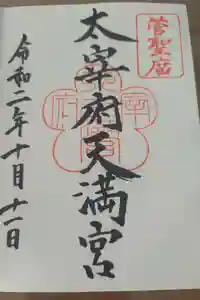 菅聖廟
太宰府天満宮
令和二年十月十一日